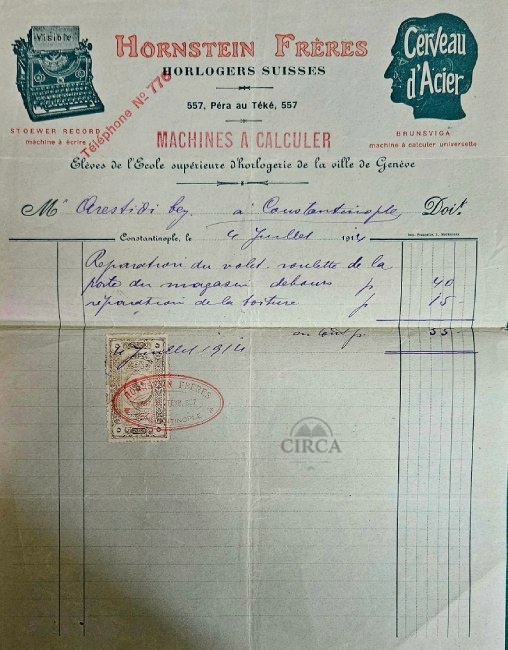 Visible
HORNSTEIN FRÈRES
HORLOGERS SUISSES
557, Péra au Téké, 557
Téléphone Nº 770
MACHINES A CALCULER
STOEWER RECORD
machine à écrire
Cerveau
d'Acier
BRUNSVIGA
machine à calculer universelle
Elèves de l'Ecole supérieure d'horlogerie de la ville de Genève
Mr Arestidi bey à Constantinople, Doit.
Constantinople, le 4 Juillet 1914
Reparation du volet roulette de la
porte du magasin debours p 40
réparation de la toiture p 15-
en tout p. 55-
4 Juillet 1914
HORNSTEIN FRÈRES
CONSTANTINOPLE
CIRCA